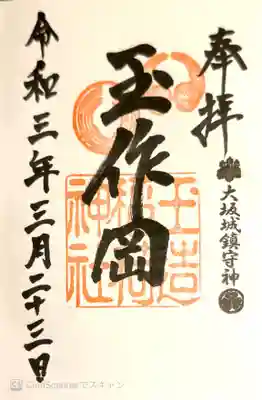 奉拝
大坂城鎮守神
玉作岡
玉造稲荷神社
令和三年三月二十三日
CamScannerでスキャン